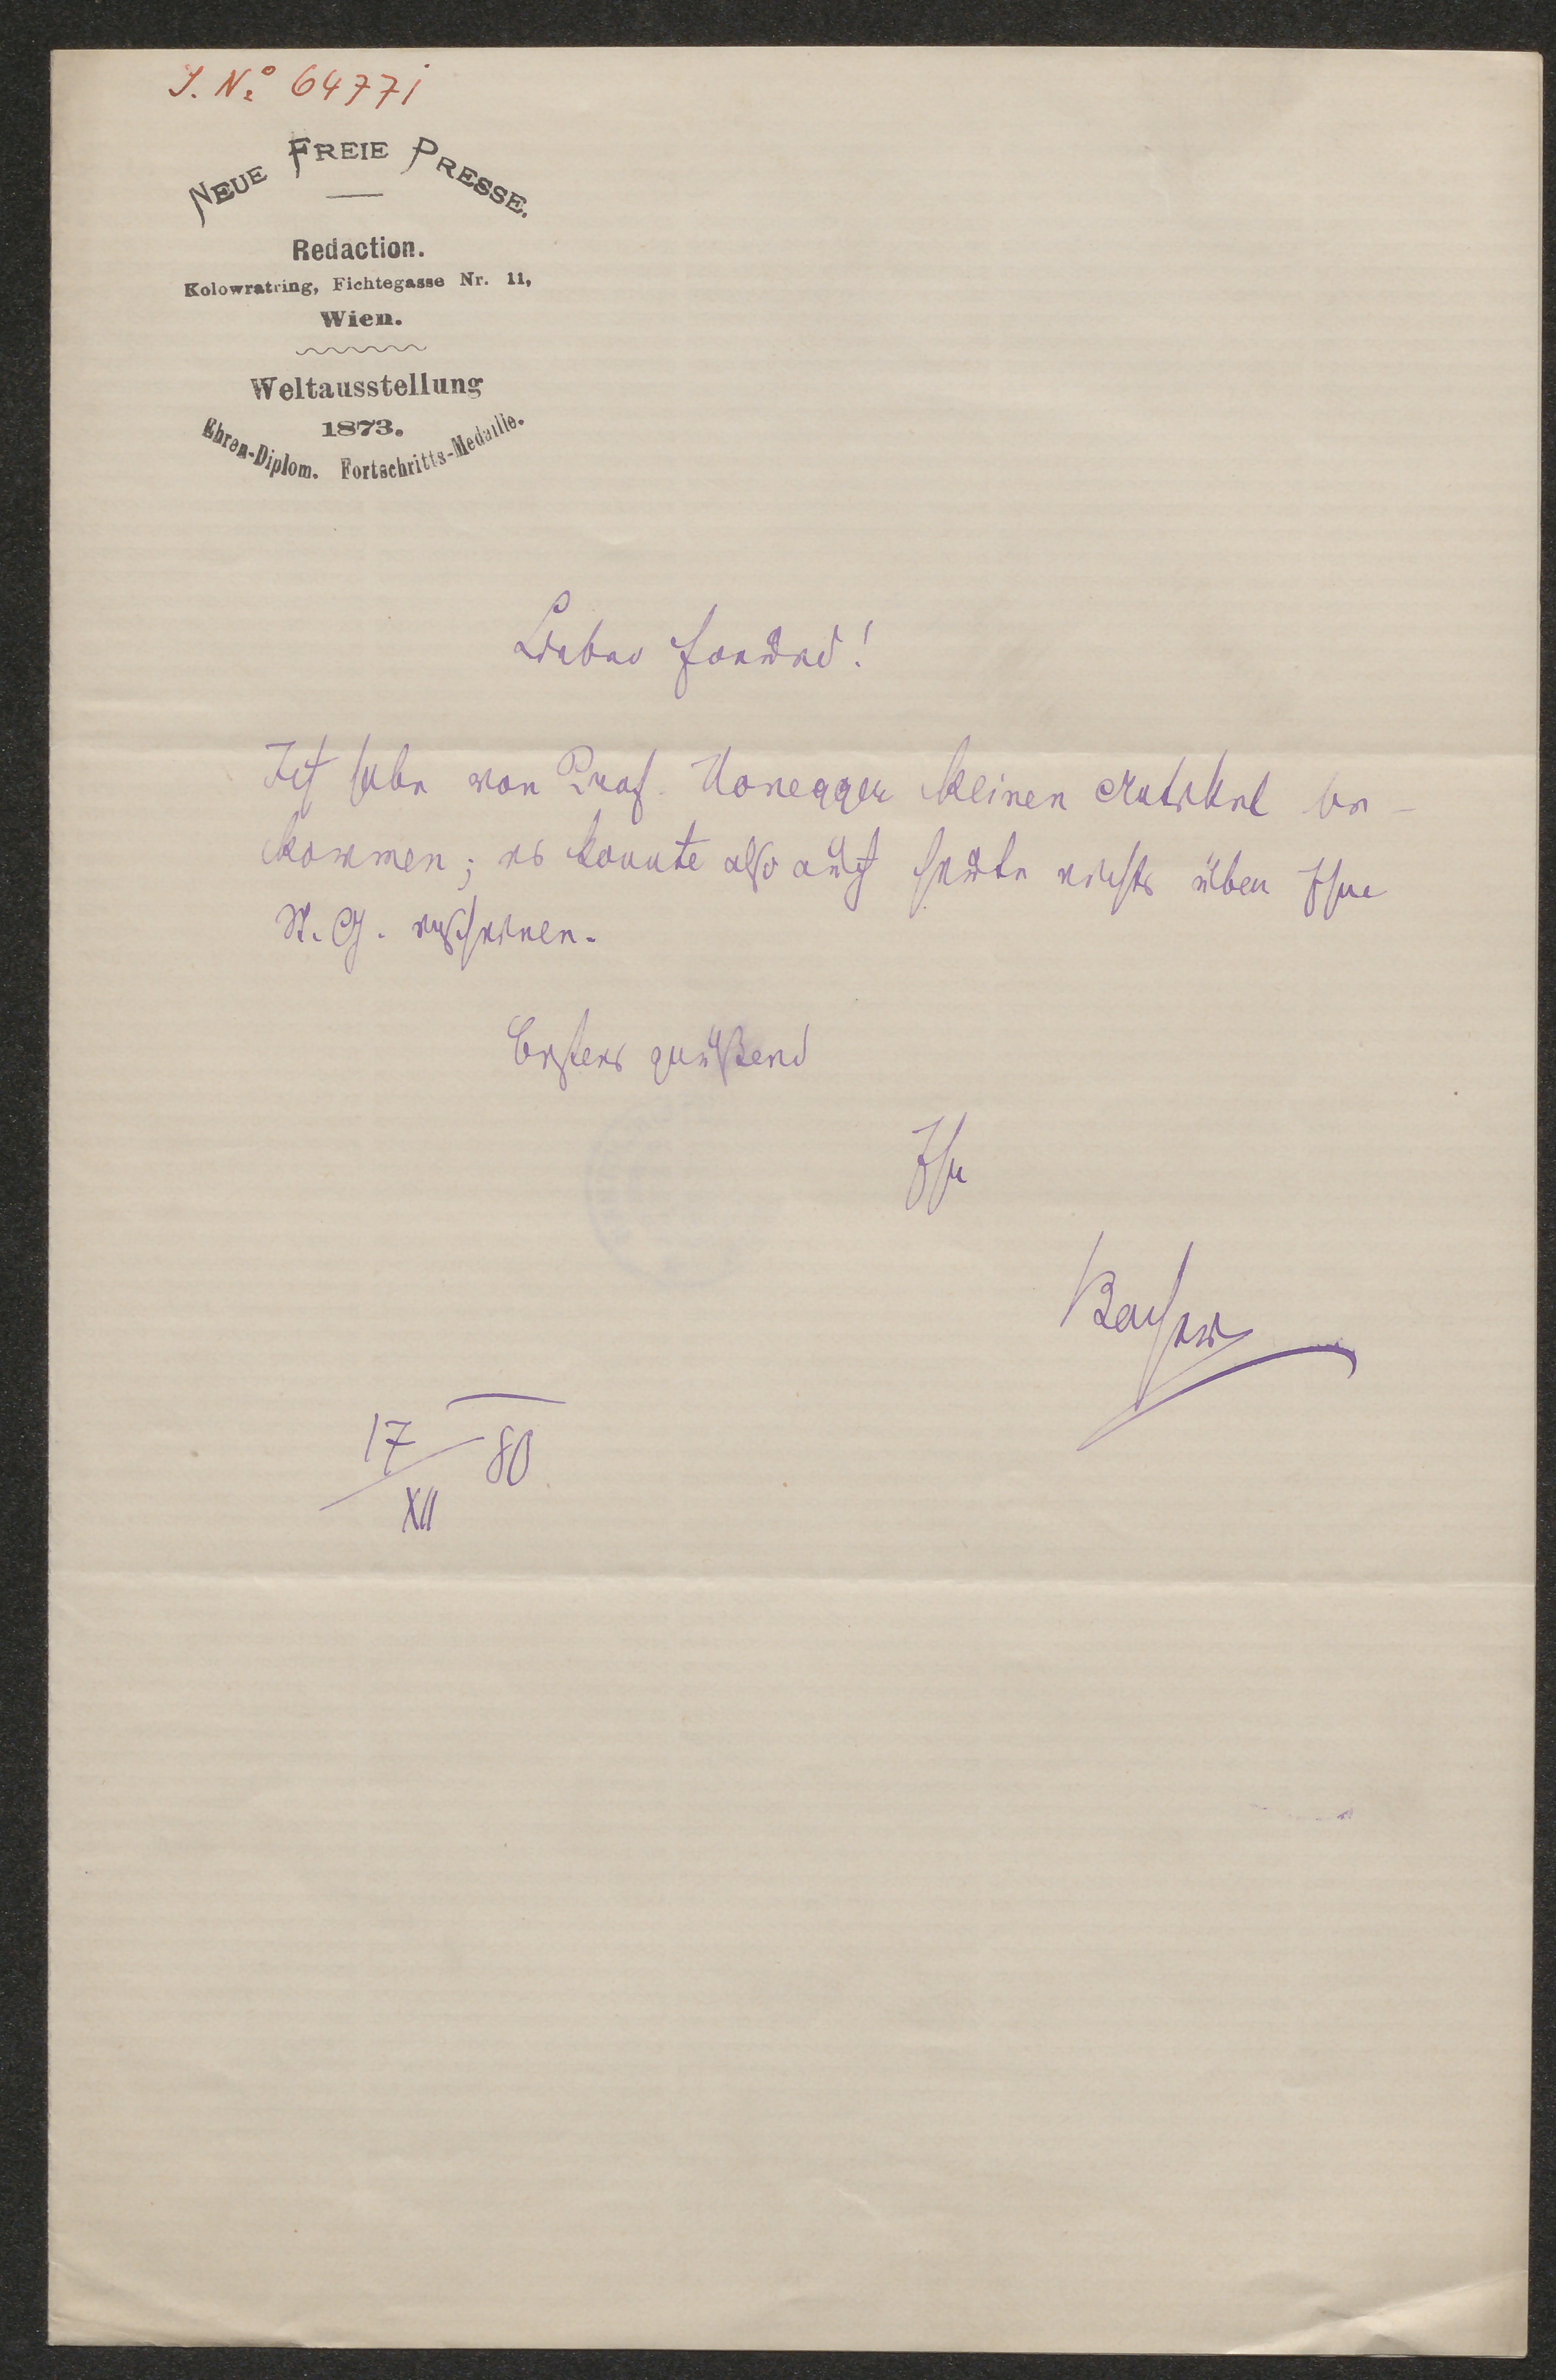 J. No 64771
NEUE FREIE PRESSE.
Redaction.
Kolowratring, Fichtegasse Nr. 11,
Wien.
Weltausstellung
1873.
Ehren-Diplom. Fortschritts-Medaille.
Lieber Freund!
Ich habe von Prof. Honegger keinen Artikel be-
kommen; es konnte also auch heute nichts über Ihre
St. G. erscheinen.
Bestens grüßend
Ihr
Bacher
17/XII 80